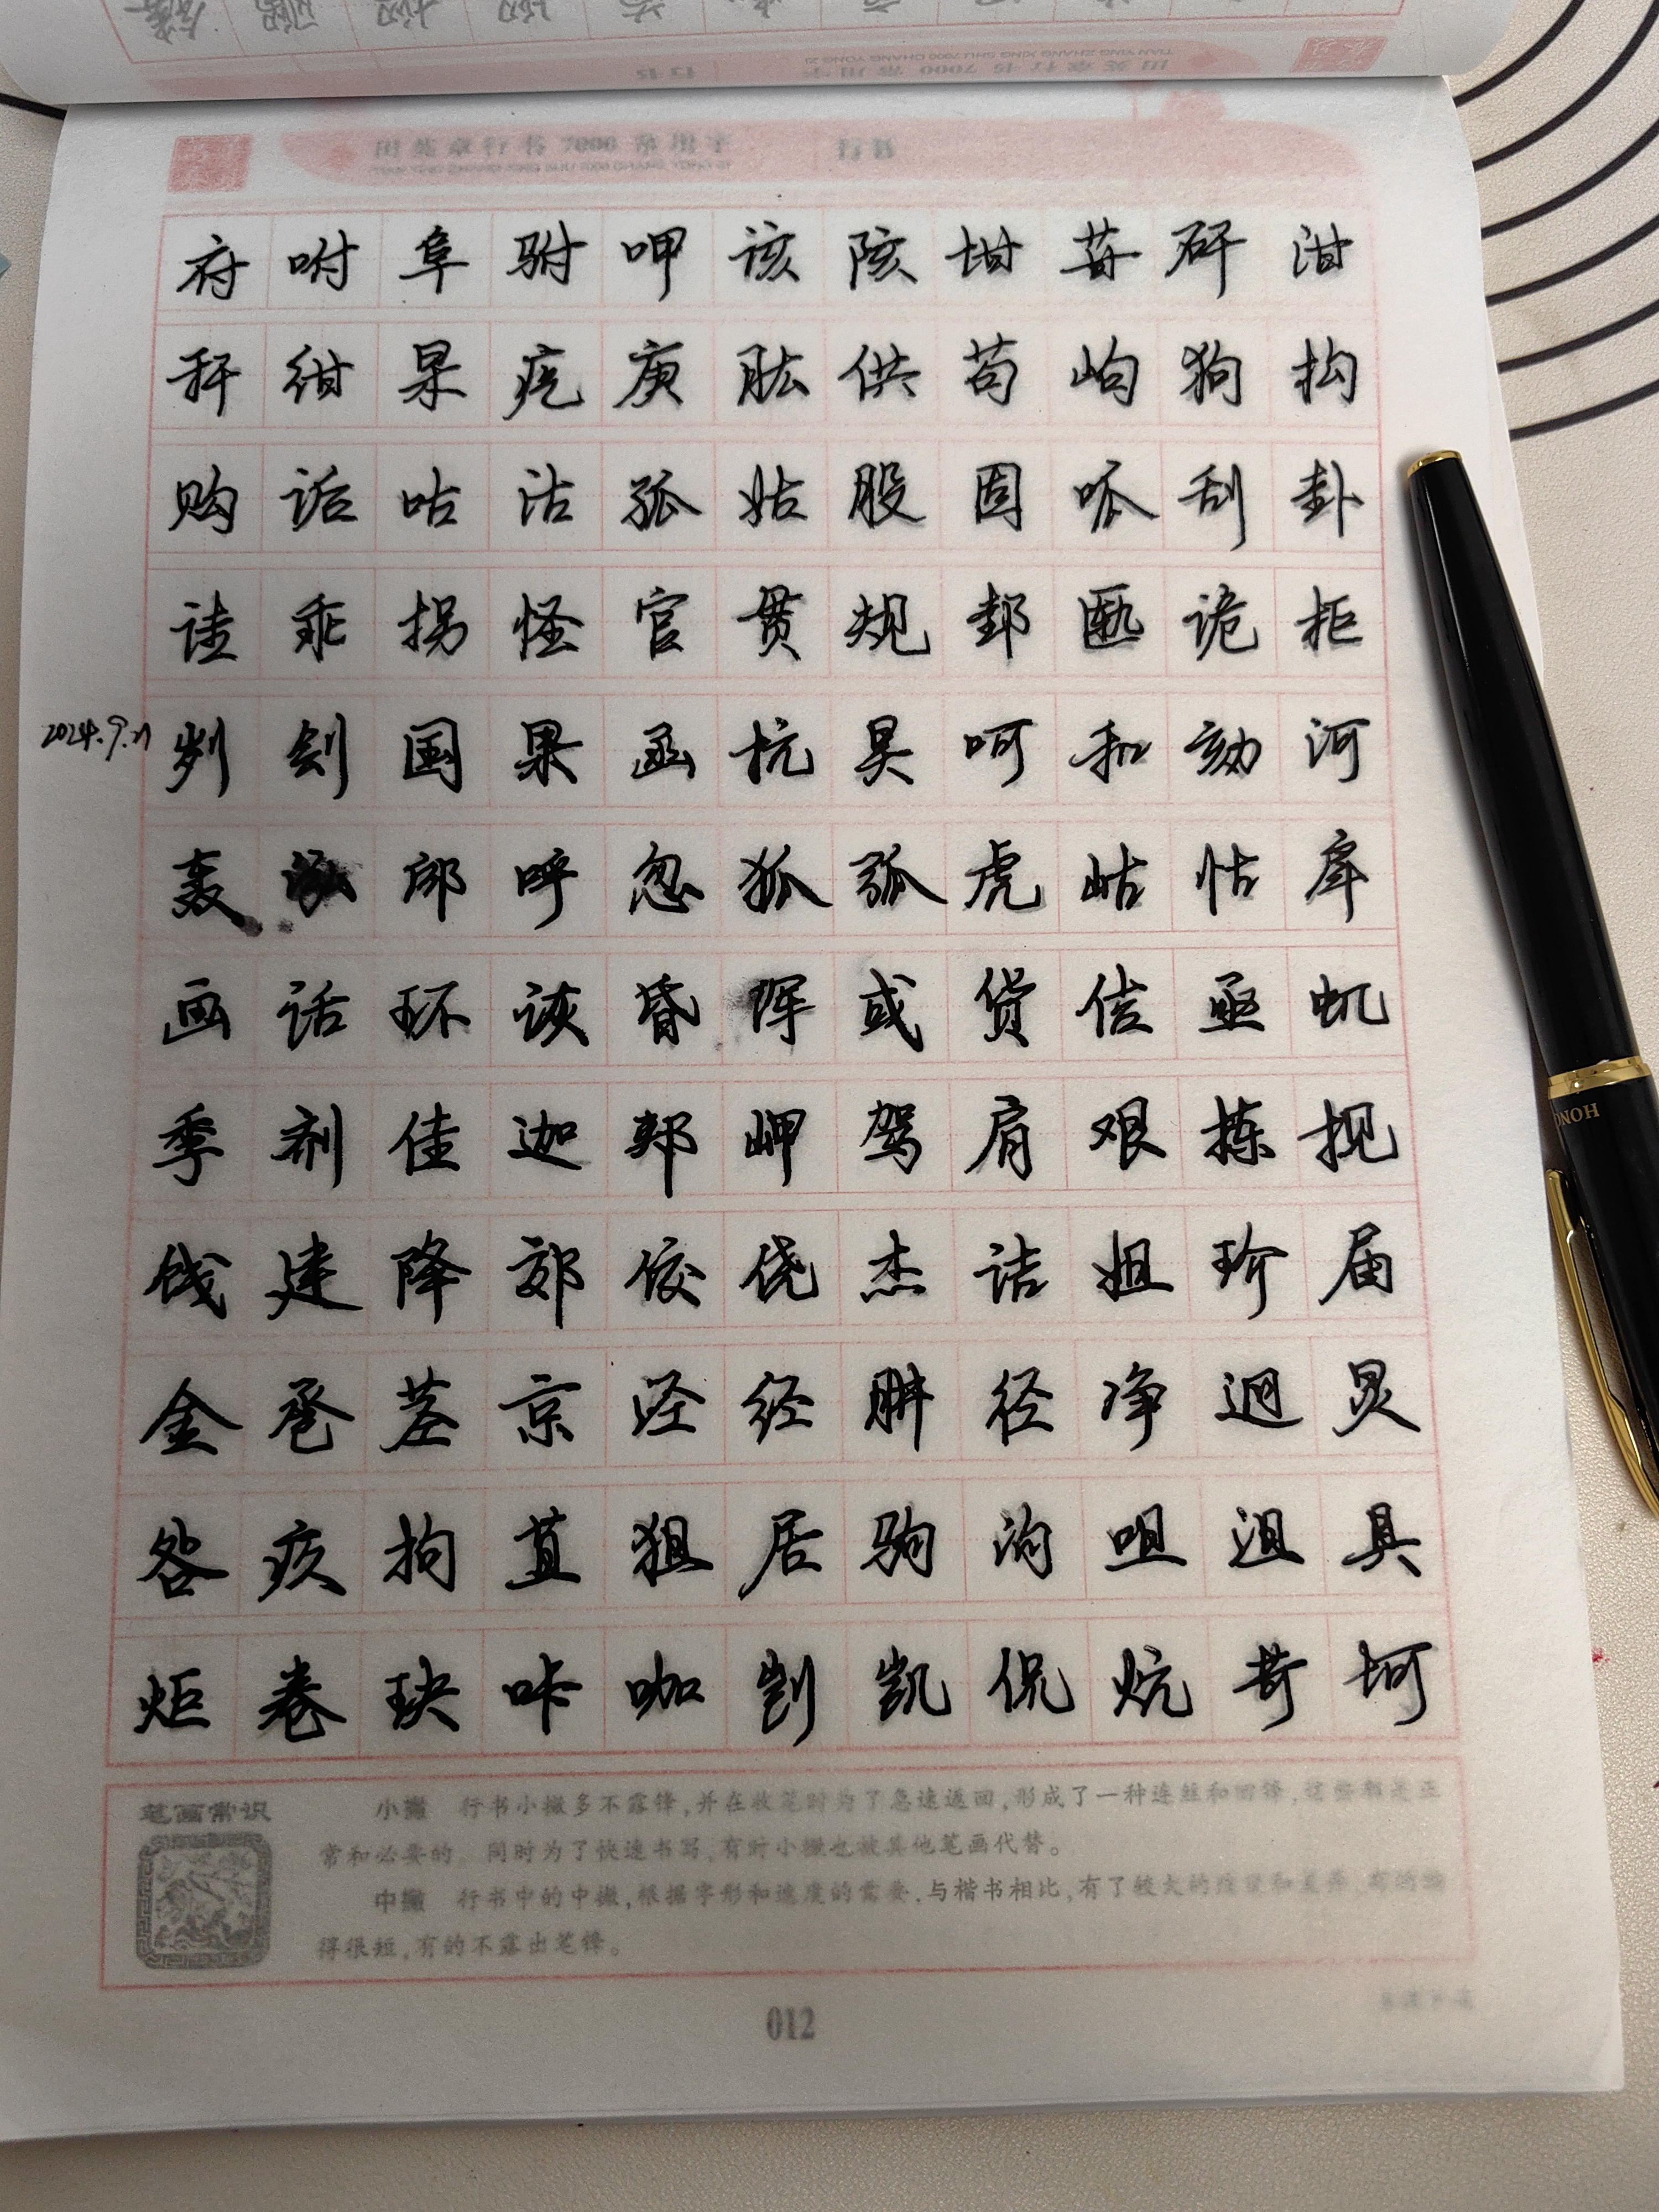 田英章行书7000常用字 行书
府 咐 阜 驸 呷 该 陔 坩 苷 矸 泔
秆 绀 杲 疙 庚 肱 供 苟 岣 狗 构
购 诟 咕 沽 孤 姑 股 固 呱 刮 卦
诖 乖 拐 怪 官 贯 规 邽 匦 诡 柜
2024.9.21
刿 刽 国 果 函 杭 昊 呵 和 劾 河
轰 泓 郈 呼 忽 狐 弧 虎 岵 怙 戽
画 话 环 诙 昏 诨 或 货 佶 亟 虮
季 剂 佳 迦 郏 岬 驾 肩 艰 拣 枧
饯 建 降 郊 佼 侥 杰 诘 姐 玠 届
金 卺 茎 京 泾 经 肼 径 净 迥 炅
咎 疚 拘 苴 狙 居 驹 泃 咀 沮 具
炬 卷 玦 咔 咖 剀 凯 侃 炕 苛 坷
笔画常识
小撇 行书小撇多不露锋,并在收笔时为了急速返回,形成了一种连丝和回锋,这些都是正
常和必要的。同时为了快速书写,有时小撇也被其他笔画代替。
中撇 行书中的中撇,根据字形和速度的需要,与楷书相比,有了较大的
得很短,有的不露出笔锋。
012